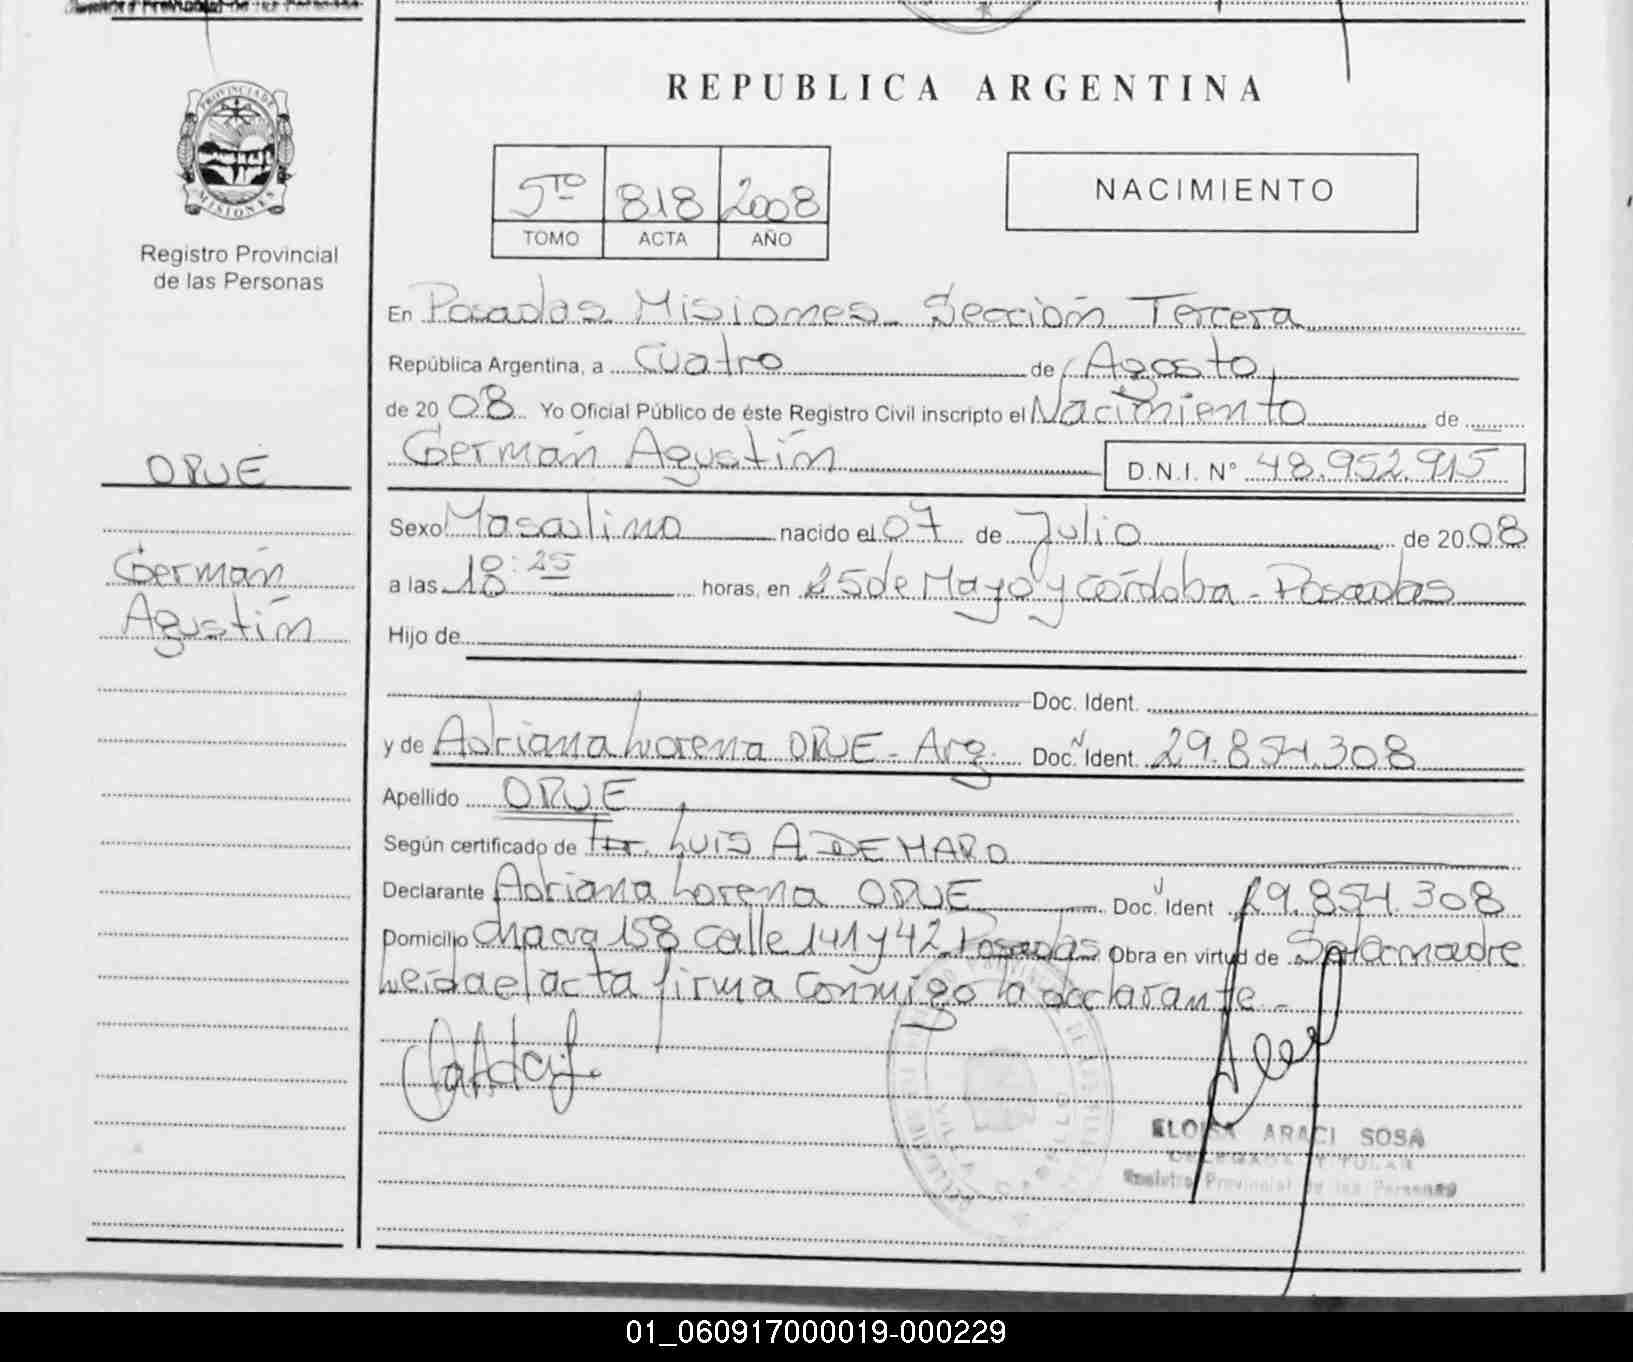 REPUBLICA ARGENTINA
PROVINCIA DE
MISIONES
Registro Provincial
de las Personas
5TO 818 2008
TOMO ACTA AÑO
NACIMIENTO
En Posadas Misiones - Sección Tercera
República Argentina, a Cuatro de Agosto
de 2008 Yo Oficial Público de éste Registro Civil inscripto el Nacimiento de
Germán Agustín D.N.I. N° 48.952.915
ORUE
Sexo Masculino nacido el 07 de Julio de 2008
Germán
a las 18:25 horas, en 25 de Mayo y Córdoba - Posadas
Agustín
Hijo de
Doc. Ident.
y de Adriana Lorena ORUE - Arg. Doc. Ident. 29.854.308
Apellido ORUE
Según certificado de LUIS A DE HARO
Declarante Adriana Lorena ORUE Doc. Ident 29.854.308
Domicilio Chacra 158 Calle 141 y 42 Posadas Obra en virtud de Ser la madre
Leida el acta firma conmigo la declarante -
ELOISA ARACI SOSA
DELEGADA TITULAR
Registro Provincial de las Personas
01_060917000019-000229